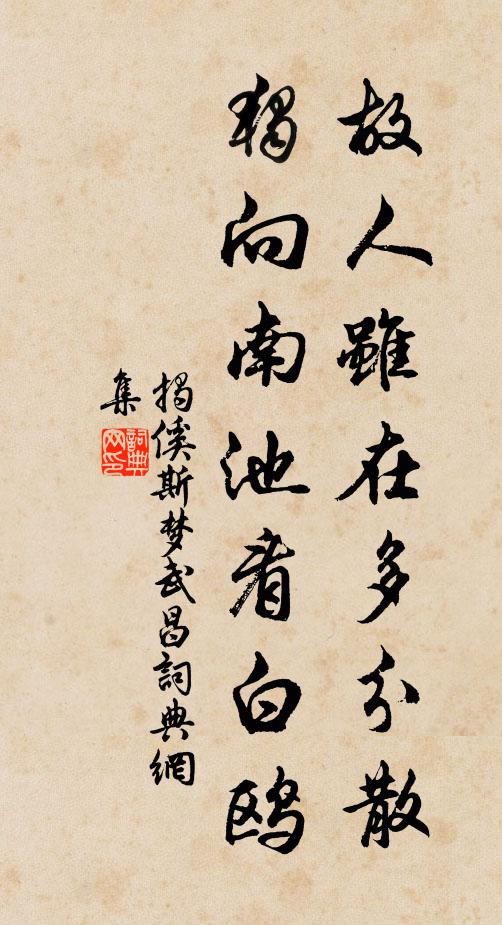 故人雖在多分散
獨向南池看白鸥
揭傒斯梦武昌詞典網
集
詞典
网印